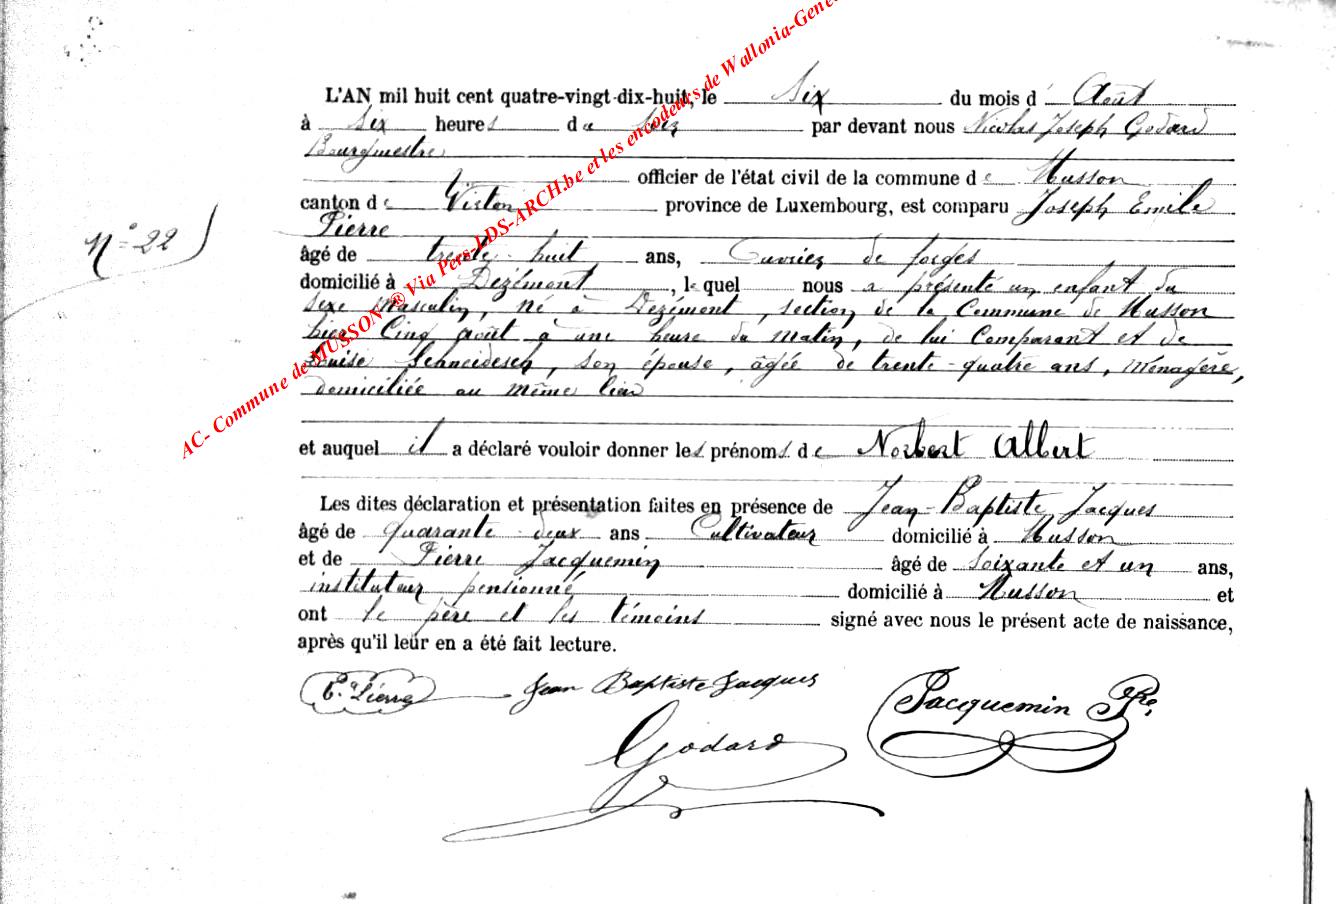 L'AN mil huit cent quatre-vingt-dix-huit, le Six du mois d' Août
à Six heures de Soir par devant nous Nicolas Joseph Godard
Bourgmestre
officier de l'état civil de la commune de Musson
canton de Virton province de Luxembourg, est comparu Joseph Emile
Pierre
N° 22
âgé de trente-huit ans, Ouvrier de forges
domicilié à Dezémont, lequel nous a présenté un enfant du
sexe Masculin, né à Dezémont, section de la Commune de Musson
hier Cinq août à une heure du Matin, de lui Comparant et de
Louise Schneidesch, son épouse, âgée de trente-quatre ans, Ménagère,
domiciliée au même lieu
et auquel il a déclaré vouloir donner les prénoms de Norbert Albert
Les dites déclaration et présentation faites en présence de Jean-Baptiste Jacques
âgé de quarante-deux ans Cultivateur domicilié à Musson
et de Pierre Jacquemin âgé de Soixante et un ans,
instituteur pensionné domicilié à Musson et
ont le père et les témoins signé avec nous le présent acte de naissance,
après qu'il leur en a été fait lecture.
E. Pierre Jean Baptiste Jacques Jacquemin Pre.
Godard
AC- Commune de MUSSON ® Via Pers-LDS-ARCH.be et les encodeurs de Wallonia-Gene